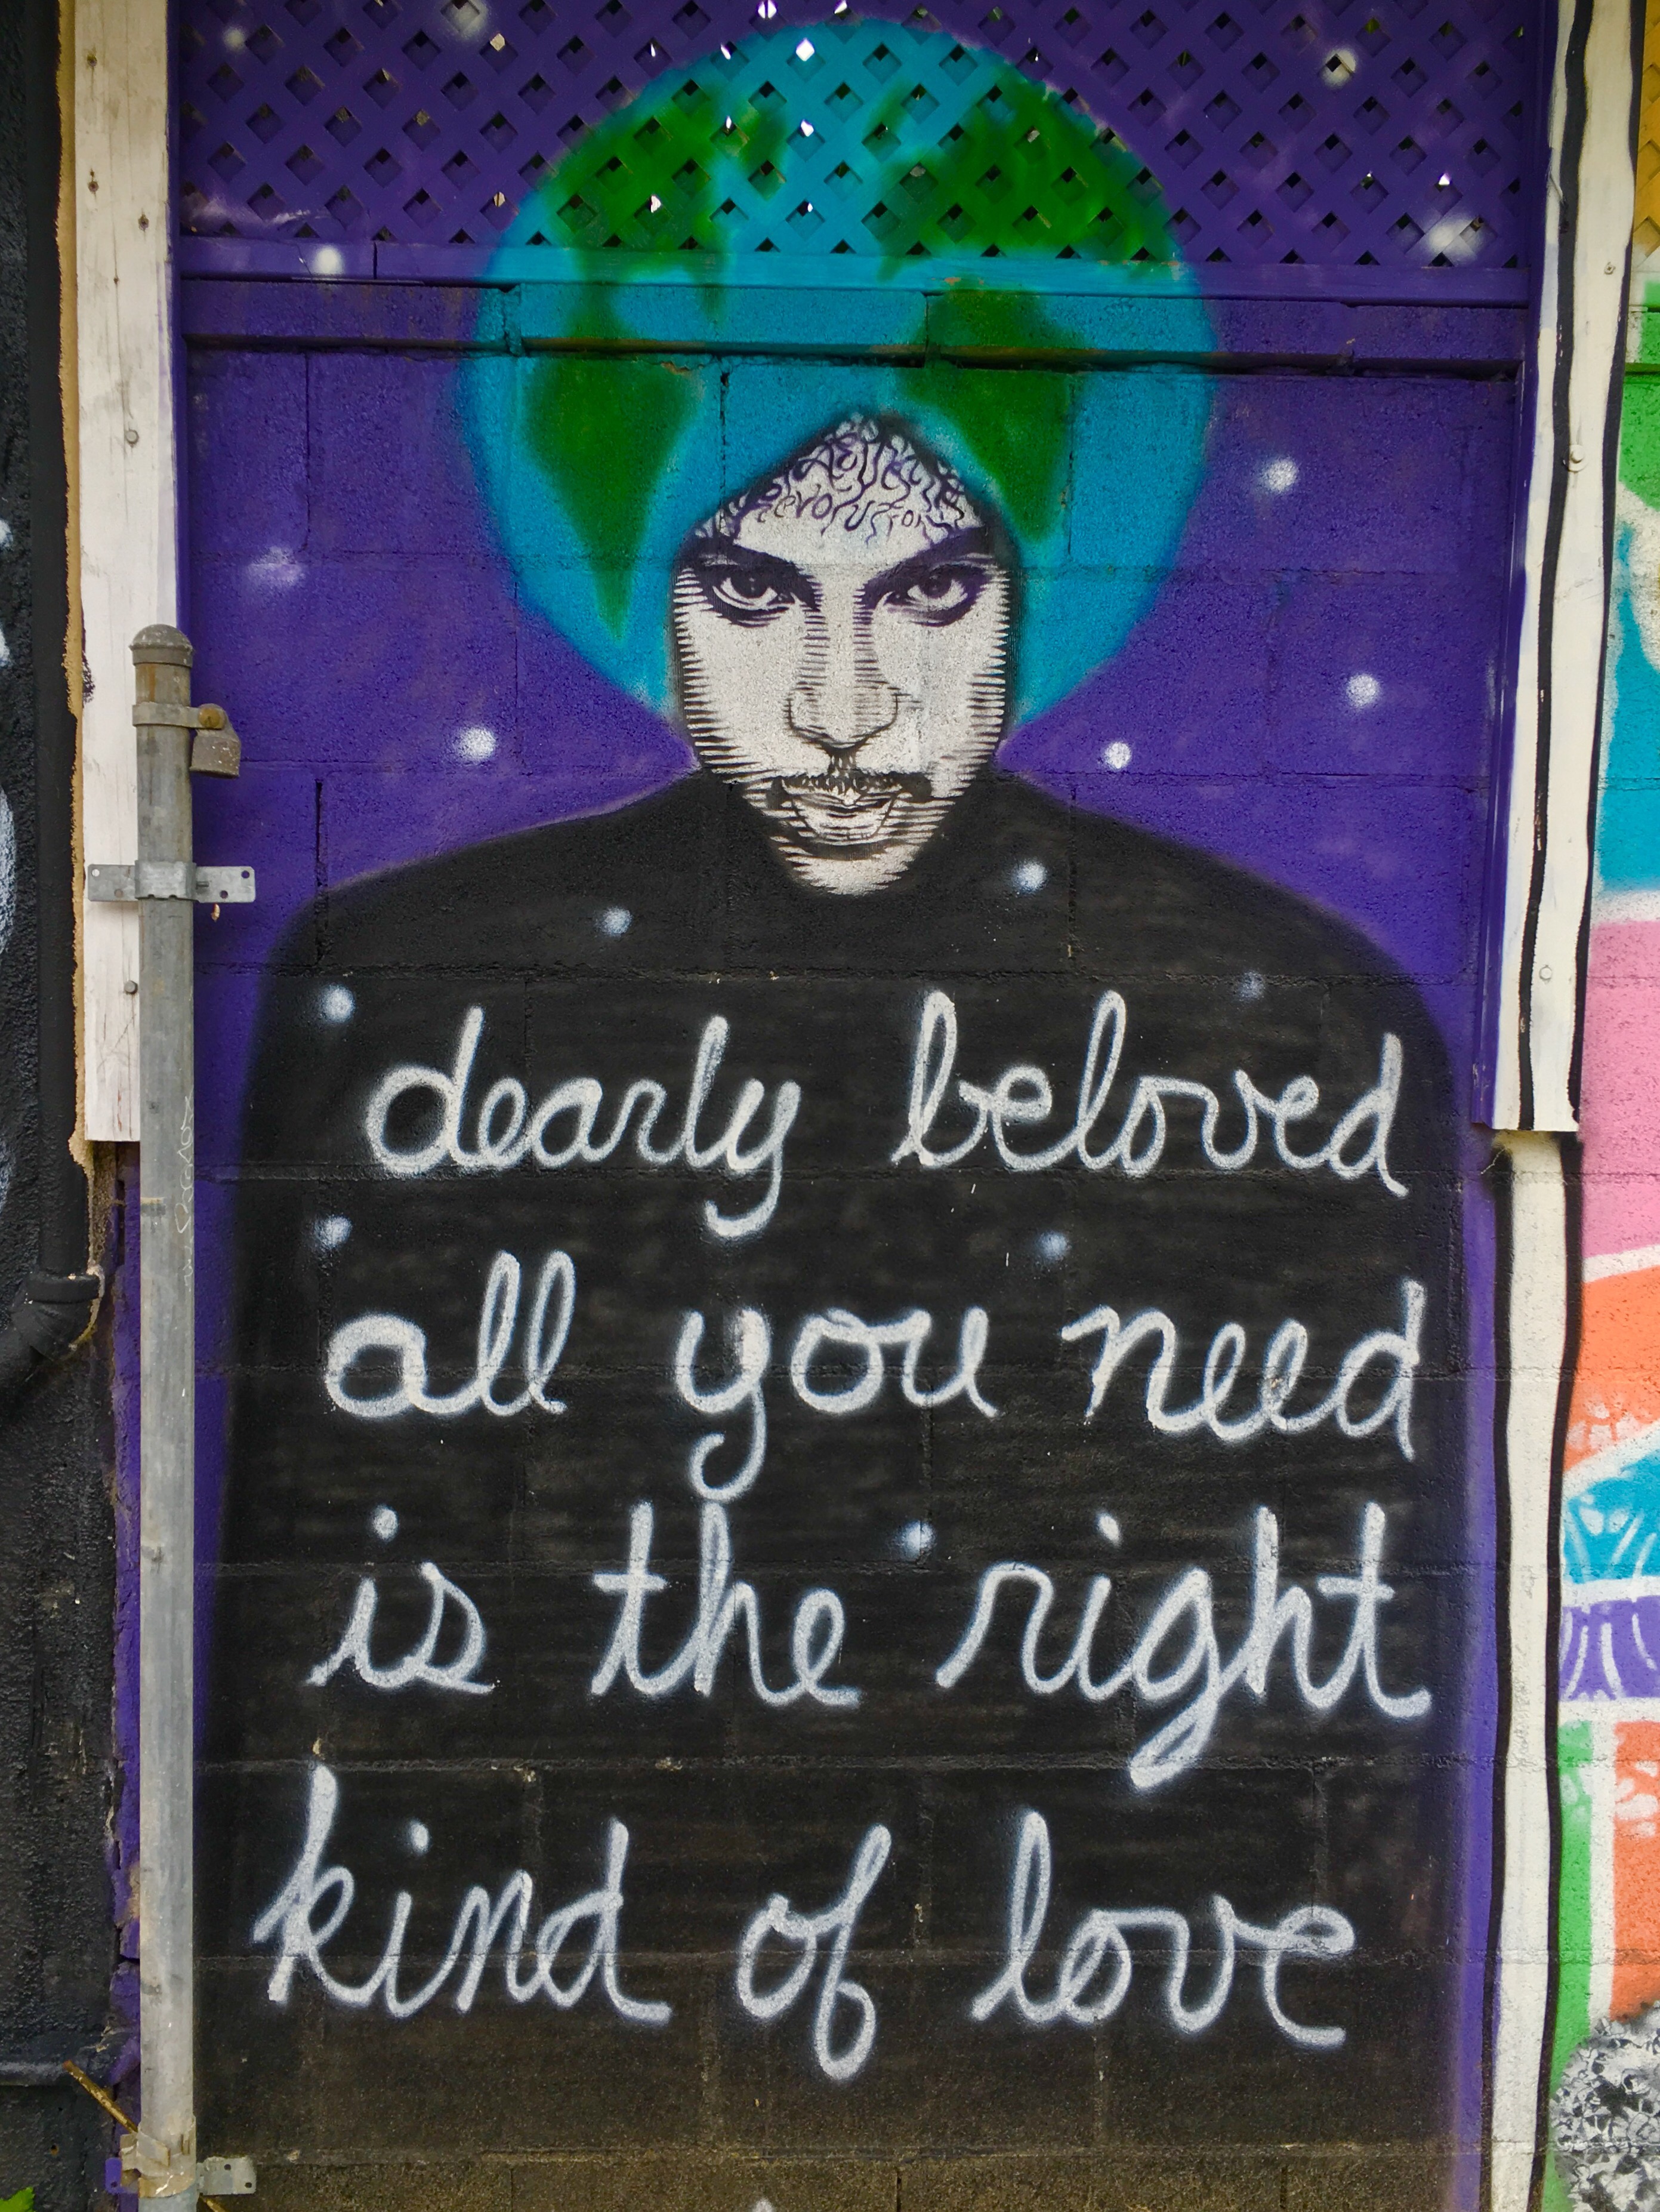 revolution
dearly beloved
all you need
is the right
kind of love